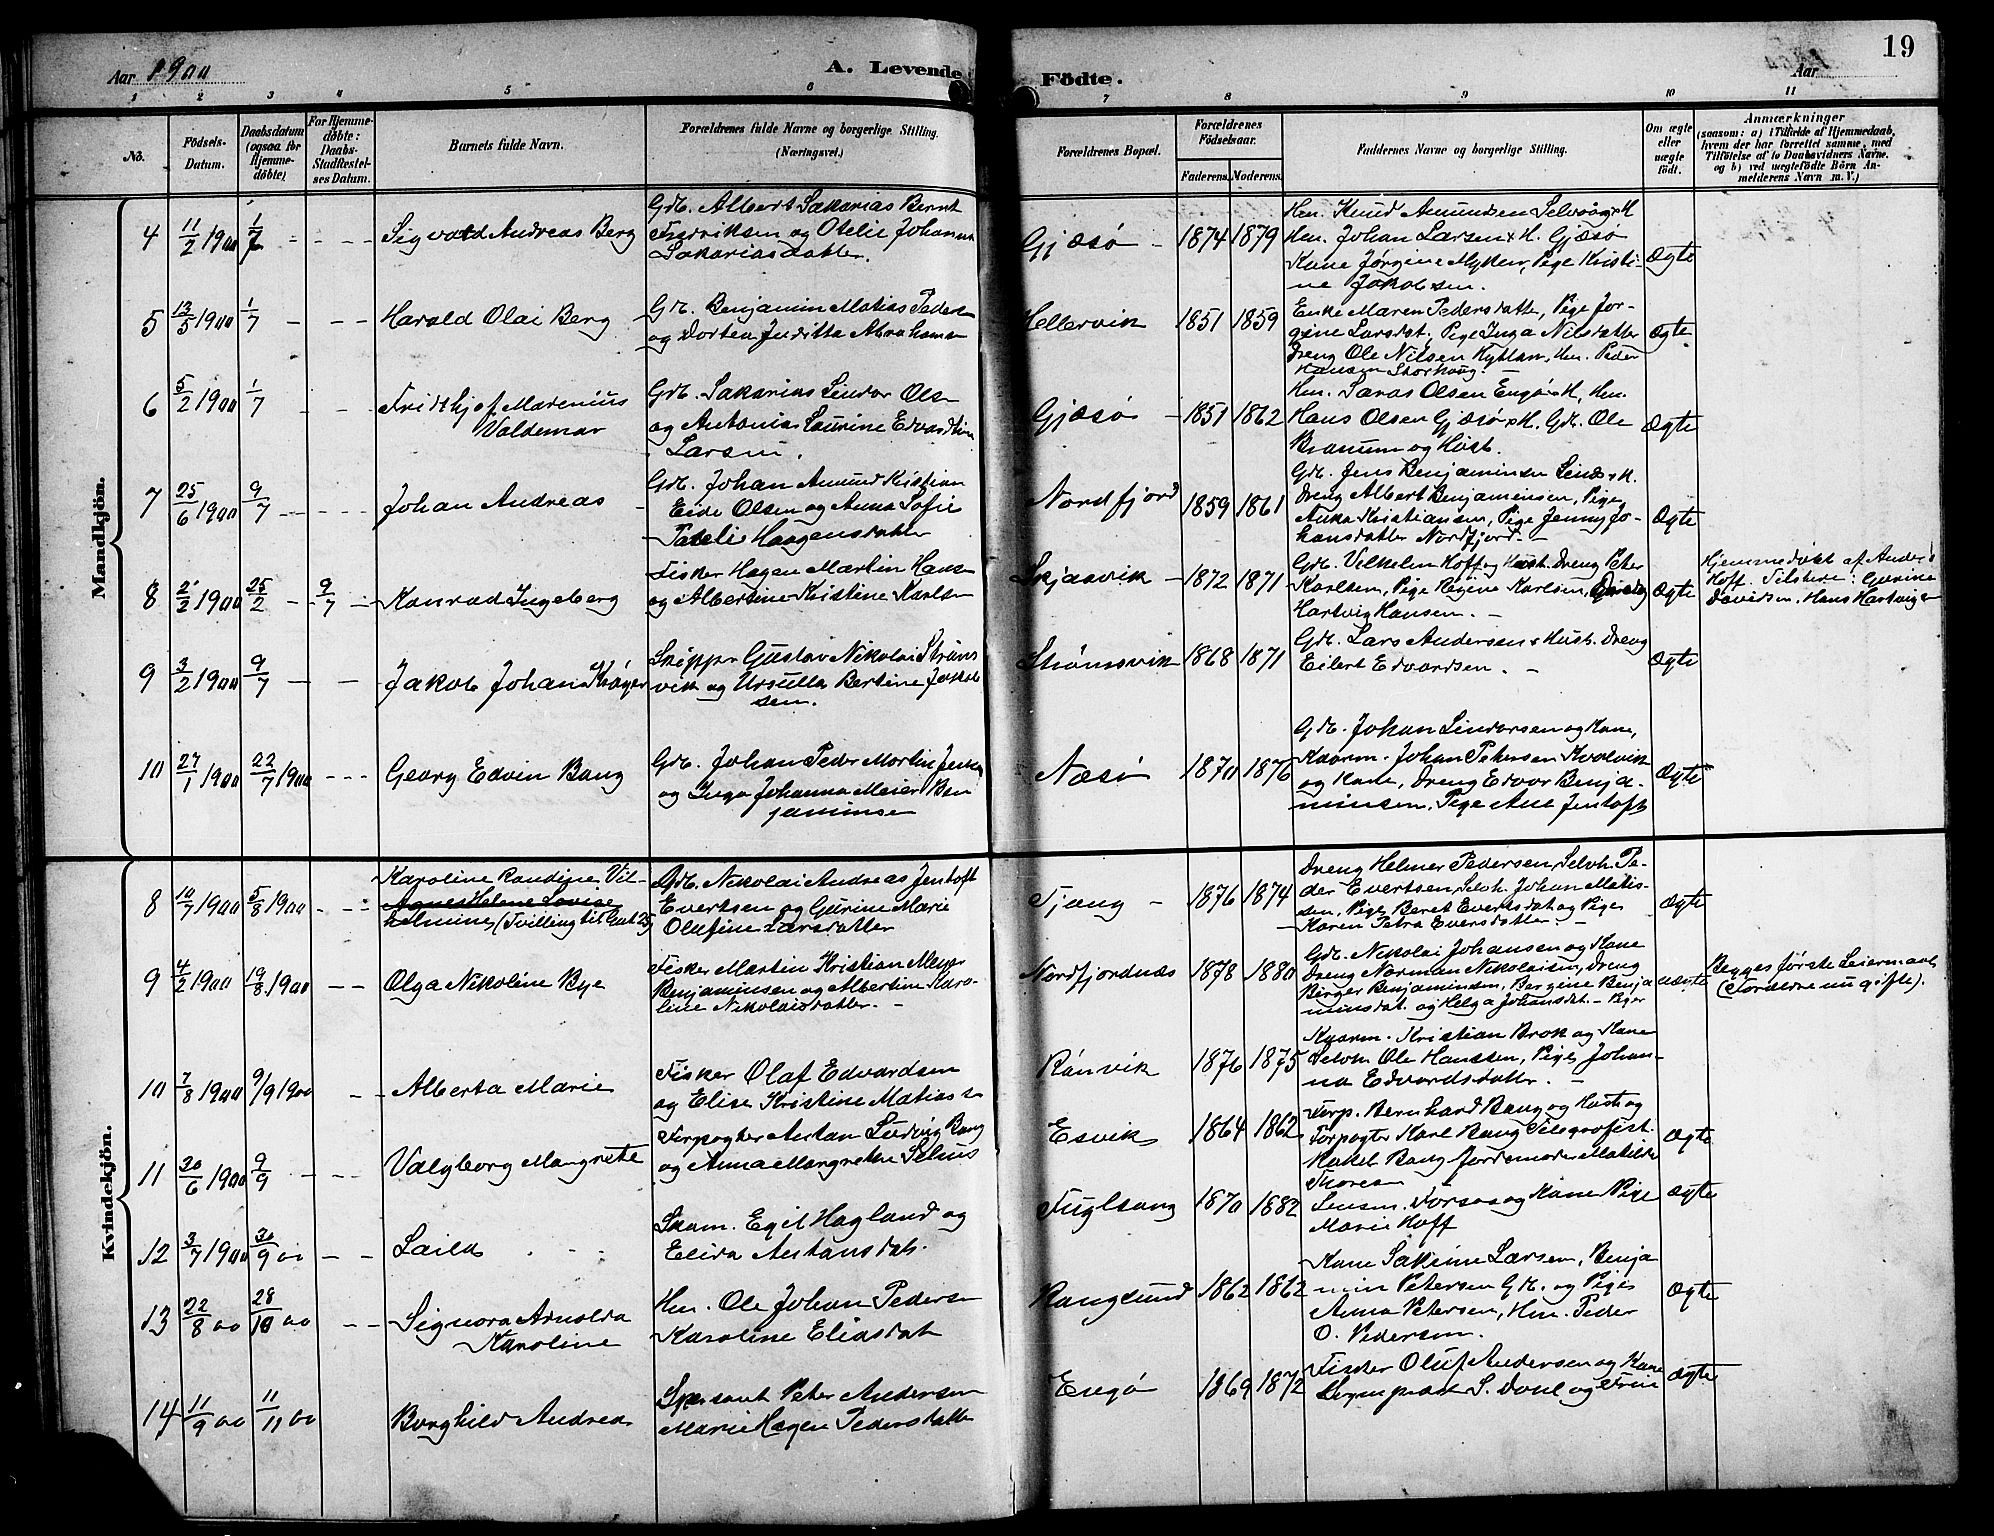 Aar 1900
A. Levende
Födte.
Aar
19
1 2 3 4 5 6 7 8 9 10 11
No.
Födsels-
Datum.
Daabsdatum
(ogsaa for
Hjemme-
döbte)
For Hjemme-
döbte:
Daabs-
Stadfæstel-
ses Datum.
Barnets fulde Navn.
Forældrenes fulde Navne og borgerlige Stilling.
(Næringsvei.)
Forældrenes Bopæl.
Forældrenes
Födselsaar.
Faderens. Moderens.
Faddernes Navne og borgerlige Stilling.
Om ægte
eller
uægte
födt.
Anmærkninger
(saasom: a) i Tilfælde af Hjemmedaab,
hvem der har forrettet samme, med
Tilföielse af to Daabsvidners Navne.
og b) ved uægtefödte Börn An-
melderens Navn m. V.)
Mandkjön.
4 11/2 1900 1/7 - - -
Sigvald Andreas Berg
Gdb. Albert Sakarias Bernt
Fredriksen og Otelie Johanna
Sakariasdatter.
Gjæsø - 1874 1879
Hm. Knud Amundsen Selvaag
Hm. Johan Larsen H. Gjæsø
Kone Jørgine Myken, Pige Kristi-
ne Jakobsen.
Ægte
5 13/5 1900 1/7 - - -
Harald Olai Berg
Gdb. Benjamin Matias Peders
og Dortea Juditta Abrahams
Hellervik 1851 1859
Enke Maren Pedersdatter, Pige Jor-
gine Larsdat, Pige Inga Nilsdatter
Dreng Ole Nilsen Hm. Peder
Hansen Storhaug. -
Ægte
6 5/2 1900 1/7 - -
Fridthjof Marenius
Valdemar
Gdb. Sakarias Sindor Ols
og Antonia Laurine Edvardine
Larsen.
Gjæsø - 1851 1862
Hm. Olsen Engø H, Hm.
Hans Olsen Gjæsø H. Gdb. Ole
og Hust.
Ægte
7 25/6 1900 9/7 - - - -
Johan Andreas -
Gdb. Johan Amund Kristian
Eide Olsen og Anna Sofie
Haagensdatter
Nordfjord 1859 1861
Gdb. Jens Benjaminsen H.
Dreng Albert Benjaminsen, Pige
Anna Kristiansen, Pige Jenny Jo-
hansdatter Nordfjord. -
Ægte
8 2/2 1900 25/2 - 9/7 -
Konrad Ingeberg
Fisker Hagen Martin Hans
og Albertine Kristine Karls
Skjærvik - 1872 1871
Gdb. Vilhelm Hoff og Hust. Dreng Peter
Karlsen, Pige Regine Karlsen, Dreng
Hartvig Hansen. -
Ægte
Hjemmedøbt af Anders
Hoff. Tilstede: Gurine
Davidsen, Hans Hartvigs
9 3/2 1900 9/7 - -
Jakob Johan Krøyer
Skipper Gustav Nikolai Strøms
vik og Ursulla Bertine Jakob
sen.
Strømsvik 1868 1871
Gdb. Lars Andersen Hust. Dreng
Eilert Edvardsen. -
Ægte
10 27/1 1900 22/7 1900 - - -
Georg Edvin Bang
Gdb. Johan Peder Martin Jens
og Inga Johanna Meier Ben
jaminsen
Næsø 1870 1876
Gdb. Johan Sindorsen og Kone,
Kaarm. Johan Petersen Kvalvik
og Kone, Dreng Edvar Benja-
minsen, Pige Ane Jentoft
Ægte
Kvindekjön.
8 10/7 1900 5/8 1900 - - -
Karoline Randine Vil-
Agnes Helene Lovise
helmine (Tvilling til 25)
Gdb. Nikolai Andreas Jentoft
Evertsen og Gurine Marie
Olufine Larsdatter
Tjong - 1876 1874
Dreng Helmer Pedersen, Selvh. Pe-
der Evertsen, Selvh. Johan Matis-
sen, Pige Beret Evertsdat og Pige
- Karen Petra Eversdatter. -
Ægte
9 4/2 1900 19/8 1900 - -
Olga Nikoline Bye
Fisker Martin Kristian Meyer
Benjaminsen og Albertine Karo-
line Nikolaisdatter. -
Nordfjordnæs 1878 1880
Gdb. Nikolai Johansen og Kone
Dreng Norman Nikolaisen, Dreng
Birger Benjaminsen, Bergine Benja
minsdat. og Helga Johansdat. - Piger
uægte
Begges første Leiermaal
(Forældre nu gifte).
10 7/8 1900 9/9 1900 - -
Alberta Marie
Fisker Olaf Edvardsen
og Elise Kristine Matias
Rønvik 1876 1875
Kaarm. Kristian Brok og Kone
Selvh Ole Hanssen, Pige Johan-
na Edvardsdatter. -
11 30/6 1900 9/9 - -
Valgborg Margrete
Forpagter Austan Ludvig Bang
og Anna Margrethe Selius
Esvik 1864 1862
Forp. Bernhard Bang og Hust og
Forpagter Karl Bang Telegrafist.
Rakel Bang Jordemoder Matilde
Thoresen
Ægte
12 3/7 1900 30/9 00 - -
Laila
Skom. Egil Hagland og
Elida Austansdat.
Fuglsang 1870 1882
Lensm. Forsaa og Kone Pige
Marie Hoff
ægte
13 22/8 00 28/10 00 - -
Signora Arnolda
Karoline
Hm. Ole Johan Peders
Karoline Eliasdat
Rangsund 1862 1862
Kone Sakrine Larsen, Benja
min Petersen Gdb. og Pige
Anna Petersen, Hm. Peder
O. Pedersen.
Ægte
14 11/9 00 11/11 00
Borghild Andrea
Peter Andersen
Marie Hagen Pedersdatter
Engø 1869 1872
Fisker Oluf Andersen og Kone
S. Dahl og Frue
Ægte